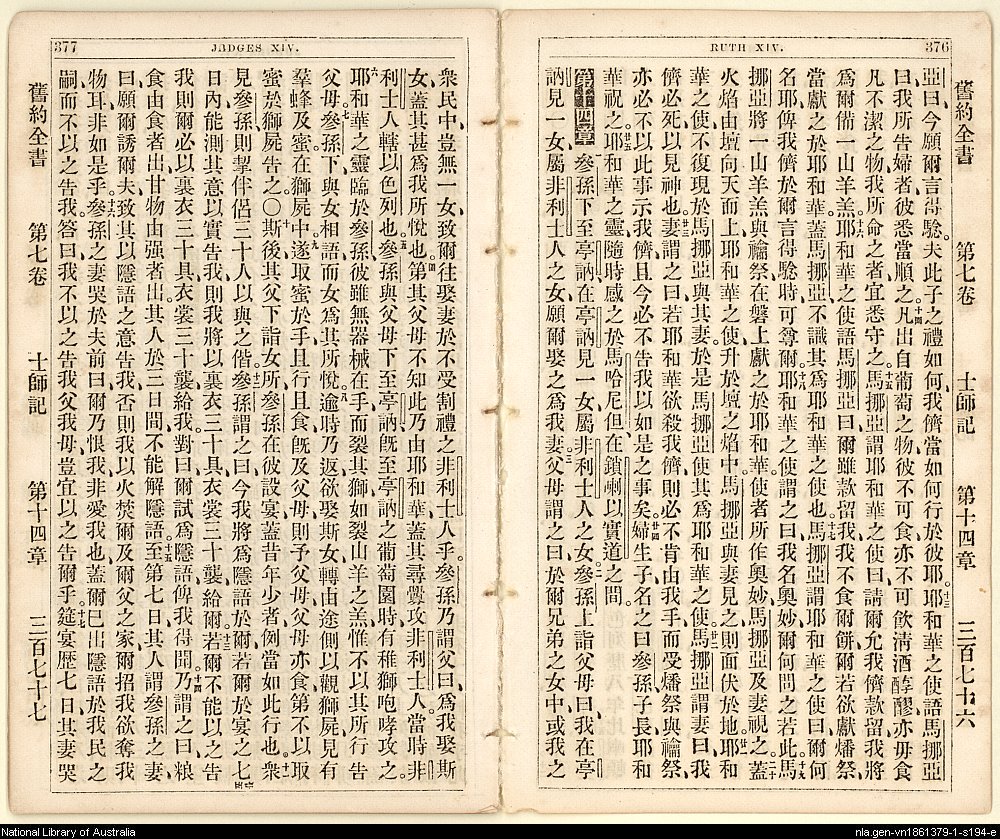 376
RUTH XIV.
舊約全書 第七卷 士師記 第十四章 三百七十六
亞曰、今願爾言得驗、夫此子之禮如何、我儕當如何行於彼耶、十三耶和華之使語馬挪亞
曰、我所告婦者、彼悉當順之、十四凡出自葡萄之物、彼不可食、亦不可飲清酒醇醪、亦毋食
凡不潔之物、我所命之者、宜悉守之、十五馬挪亞謂耶和華之使曰、請爾允我儕款留我將
爲爾備一山羊羔、十六耶和華之使語馬挪亞曰、爾雖款留我、我不食爾餅、爾若欲獻燔祭、
當獻之於耶和華、蓋馬挪亞不識其爲耶和華之使也、十七馬挪亞謂耶和華之使曰、爾何
名耶、俾我儕於爾言得驗時可尊爾、十八耶和華之使謂之曰、我名奧妙、爾何問之若此、十九馬
挪亞將一山羊羔與禴祭、在磐上獻之於耶和華、使者所作奧妙、馬挪亞及妻視之、二十蓋
火焰由壇向天而上、耶和華之使升於壇之焰中、馬挪亞與妻見之、則面伏於地、廿一耶和
華之使不復現於馬挪亞與其妻、於是馬挪亞使其爲耶和華之使、廿二馬挪亞謂妻曰、我
儕必死以見神也、廿三妻謂之曰、若耶和華欲殺我儕、則必不肯由我手而受燔祭與禴祭、
亦必不以此事示我儕、且今必不告我以如是之事矣、廿四婦生子、名之曰參孫、子長、耶和
華祝之、廿五耶和華之靈隨時感之、於馬哈尼但、在鎖喇以實道之間。
第十四章 參孫下至亭訥、在亭訥見一女、屬非利士人之女、二參孫上詣父母曰、我在亭
訥見一女、屬非利士人之女、願爾娶之爲我妻、三父母謂之曰、於爾兄弟之女中、或我之
377
JUDGES XIV.
衆民中、豈無一女、致爾往娶妻於不受割禮之非利士人乎、參孫乃謂父曰、爲我娶斯
女、蓋其甚爲我所悅也、四第其父母不知此乃由耶和華、蓋其尋釁攻非利士人、當時非
利士人轄以色列也、五參孫與父母下至亭訥、旣至亭訥之葡萄園、時有稚獅咆哮攻之、
六耶和華之靈臨於參孫、彼雖無器械在手、而裂其獅、如裂山羊之羔、惟不以其所行告
父母、七參孫下、與女相語、而女爲其所悅、八逾時乃返、欲娶斯女、轉由途側以觀獅屍、見有
羣蜂及蜜在獅屍中、九遂取蜜於手、且行且食、旣及父母、則予父母、父母亦食、第不以取
蜜於獅屍告之。〇十斯後其父下詣女所、參孫在彼設宴、蓋昔年少者例當如此行也、十一衆
見參孫、則挈伴侶三十人以與之偕、十二參孫謂之曰、今我將爲隱語於爾、若爾於宴之七
日內能測其意、以實告我、則我將以裏衣三十具、衣裳三十襲給爾、十三若爾不能以之告
我、則爾必以裏衣三十具、衣裳三十襲給我、對曰、爾試爲隱語、俾我得聞、十四乃謂之曰、糧
食由食者出、甘物由強者出、其人於三日間不能解隱語、十五至第七日、其人謂參孫之妻
曰、願爾誘爾夫、致其以隱語之意告我、否則我以火焚爾及爾父之家、爾招我欲奪我
物耳、非如是乎、十六參孫之妻哭於夫前曰、爾乃恨我、非愛我也、蓋爾已出隱語於我民之
嗣、而不以之告我、答曰、我不以之告我父我母、豈宜以之告爾乎、十七筵宴歷七日、其妻哭
舊約全書 第七卷 士師記 第十四章 三百七十七
National Library of Australia
nla.gen-vn1861379-1-s194-e